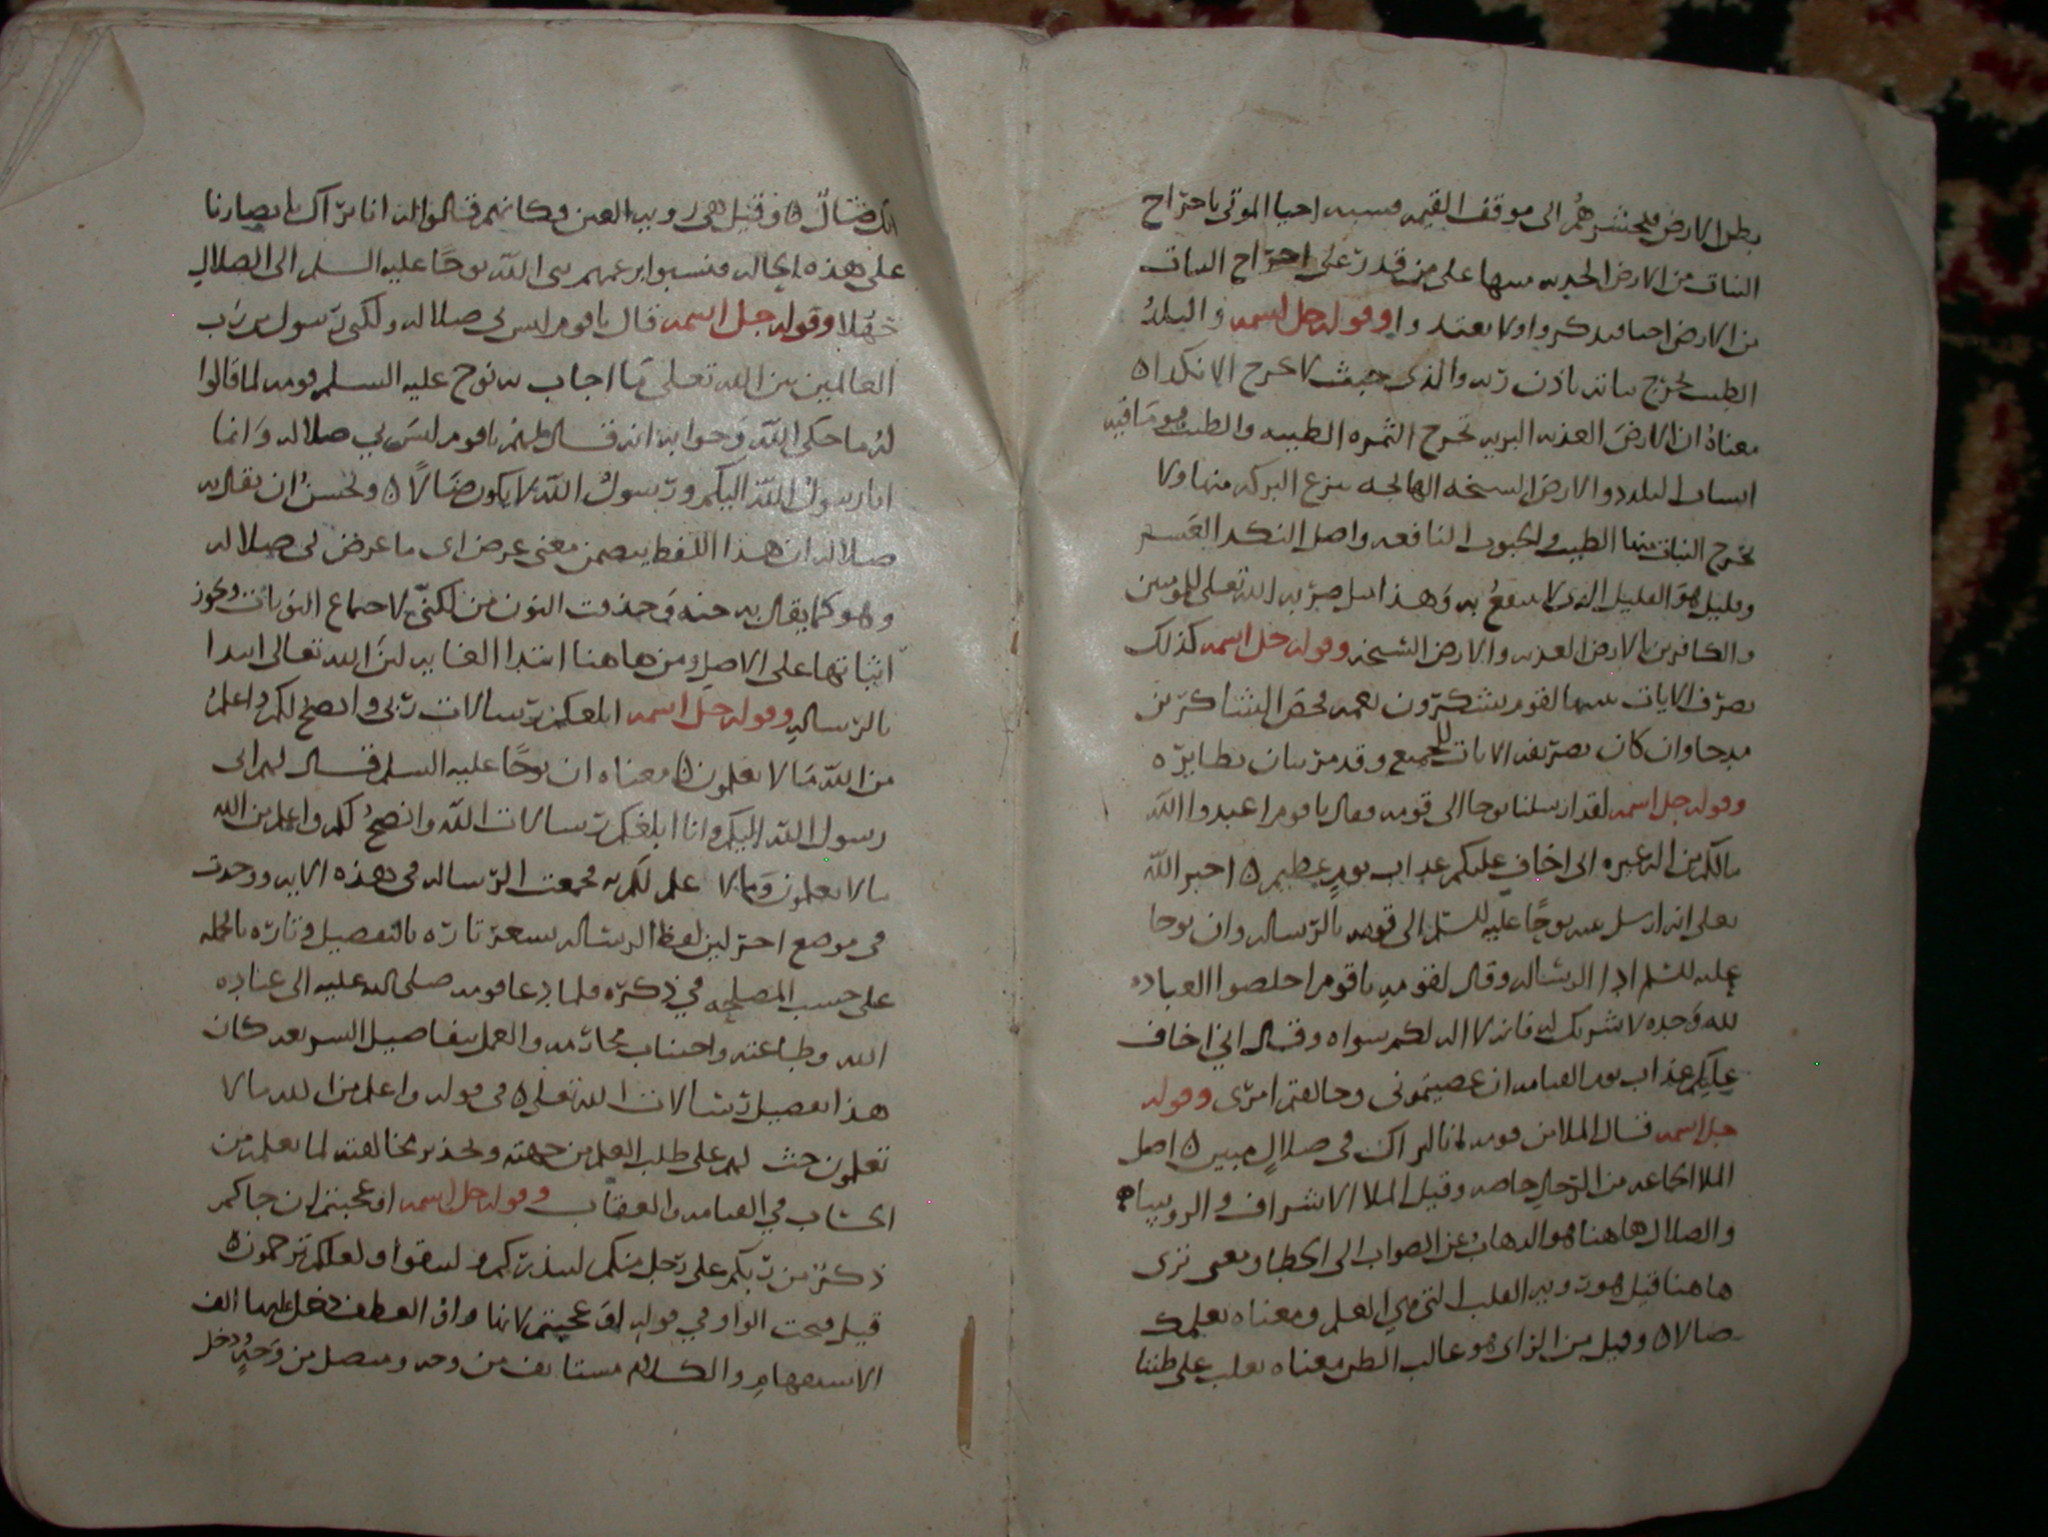 بطن الارض فيحشرهم الى موقف القيمه فسبه احيا الموتى باخراج
النبات من الارض الجدبه سها على من قدر على اخراج النبات
من الارض احيا فيذكروا ولا يعتدوا وقوله جل اسمه والبلد
الطيب يخرج نباته باذن ربه والذى خبث لا يخرج الا نكدا ه
معناه ان الارض العذبه البريه تخرج الثمره الطيبه والطيب هو مافيه
البلدد والارض السخه المالحه ينزع البركه منها ولا
تخرج النبات منها الطيب والحبوب النافعه واصل النكد العسر
وقليل هو القليل الذى لا ينتفع به وهذا مثل ضربه الله تعلى للمومنين
والكافرين بالارض العذبه والارض السخه وقوله جل اسمه كذلك
نصرف الايات لقوم يشكرون نعمه فخص الشاكرين
مدحا وان كان تصريف الايات للجميع وقد مر بيان نظايره
وقوله جل اسمه لقد ارسلنا نوحا الى قومه فقال ياقوم اعبدوا الله
مالكم من اله غيره انى اخاف عليكم عذاب يوم عظيم ه اخبر الله
تعلى انه ارسل نوحا عليه السلم الى قومه بالرساله وان نوحا
عليه السلم ادا الرساله وقال لقومه ياقوم اخلصوا العباده
لله وحده لا شريك له فانه لا اله لكم سواه وقال انى اخاف
عليكم عذاب يوم القيامه ان عصيتمونى وخالفتم امرى وقوله
جل اسمه قال الملا من قومه انا لنراك فى ضلال مبين ه اصل
الملا الجماعه من الرجال خاصه وقيل الملا الاشراف والروسا ه
والضلال هاهنا هو الذهاب عن الصواب الى الخطا ومعنى نرى
هاهنا قيل هو رويه القلب التى هى العلم ومعناه نعلمك
ضالا ه وقيل من الراى هو غالب الظن معناه يغلب على ظننا
انك ضال ه وقيل هى رويه العين وكانهم قالوا له انا نراك بابصارنا
على هذه الحاله فنسبوا ابن عمهم نبى الله نوحا عليه السلم الى الضلال
جهلا وقوله جل اسمه قال ياقوم ليس بى ضلاله ولكنى رسول من رب
العالمين بين الله تعلى ما اجاب به نوح عليه السلم قومه لما قالوا
له ما حكى الله وجوابه انه قال لهم ياقوم ليس بى ضلاله وانما
انا رسول الله اليكم ورسول الله لا يكون ضالا ه ويحسن ان يقال به
ضلاله ان هذا اللفظ يتضمن معنى عرض اى ما عرض لى ضلاله
وهو كما يقال به جنه وحذفت النون من لكنى لاجتماع النونات ويجوز
اثباتها على الاصل ومن هاهنا ابتدا الغايه لان الله تعالى ابتدا
بالرساله وقوله جل اسمه ابلغكم رسالات ربى وانصح لكم واعلم
من الله مالا تعلمون ه معناه ان نوحا عليه السلم قال لهم انى
رسول الله اليكم وانا ابلغكم رسالات الله وانصح لكم واعلم من الله
مالا تعلمون ومالا علم لكم به فجمعت الرساله فى هذه الايه ووحدت
فى موضع اخر لان لفظ الرساله تشعر تاره بالتفصيل وتاره بالجمله
على حسب المصلحه فى ذكره فلما دعا قومه صلى الله عليه الى عباده
الله وطاعته واجتناب محارمه والعمل بتفاصيل الشريعه كان
هذا تفصيل رسالات الله تعلى ه فى قوله واعلم من الله مالا
تعلمون حث لهم على طلب العلم من جهته وتحذير مخالفته لما يعلمه من
الحساب فى القيامه والعقاب وقوله جل اسمه اوعجبتم ان جاكم
ذكر من ربكم على رجل منكم لينذركم ولتتقوا ولعلكم ترحمون ه
قيل فتحت الواو فى قوله اوعجبتم لانها واو العطف دخل عليها الف
الاستفهام والكلام مستانف من وجه ومتصل من وجه دخل